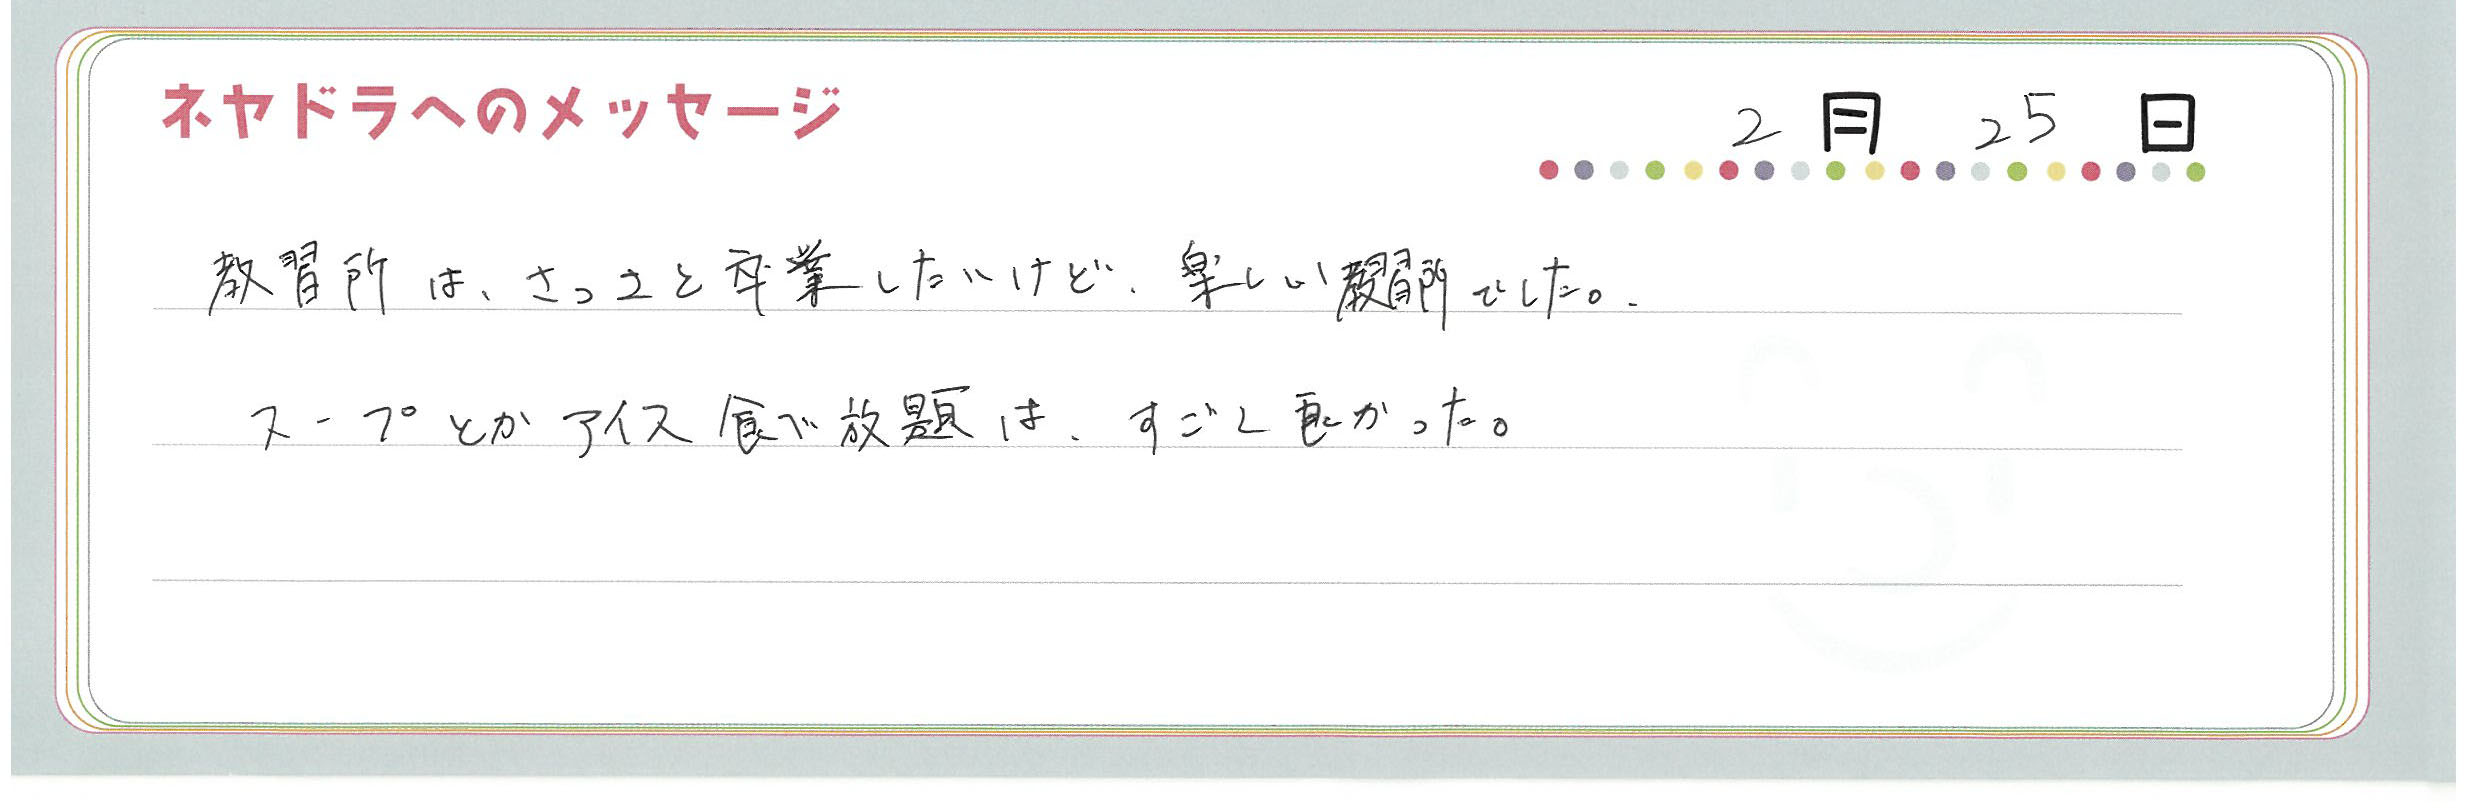 ネヤドラへのメッセージ
2月25日
教習所は、さっさと卒業したいけど、楽しい教習所でした。
スープとかアイス食べ放題は、すごく良かった。